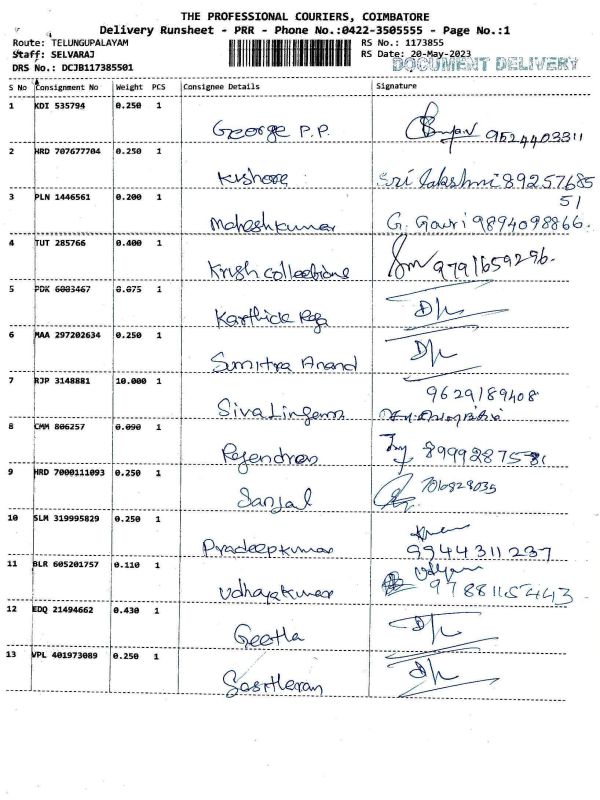 THE PROFESSIONAL COURIERS, COIMBATORE
Delivery Runsheet - PRR - Phone No.:0422-3505555 - Page No.:1
Route: TELUNGUPALAYAM RS No.: 1173855
Staff: SELVARAJ RS Date: 20-May-2023
DRS No.: DCJB117385501 DOCUMENT DELIVERY
S No Consignment No Weight PCS Consignee Details Signature
1 KDI 535794 0.250 1
George P.P. 9524403311
2 HRD 707677704 0.250 1
Kishore Sri Lakshmi 89257685
3 PLN 1446561 0.200 1 51
Maheshkumar G. Gowri 9894098866.
4 TUT 285766 0.400 1
Krish Collections 9791659296.
5 PDK 6003467 0.075 1
Karthick Raja D/L
6 MAA 297202634 0.250 1
Sumitra Anand D/L
7 RJP 3148881 10.000 1 9629189408
SivaLingam
8 CMM 806257 0.090 1
Rajendran 8999287581
9 HRD 7000111093 0.250 1
Sanjal 706828035
10 SLM 319995829 0.250 1
Pradeepkumar 9944311237
11 BLR 605201757 0.110 1
Udhayakumar 9788115443
12 EDQ 21494662 0.430 1
Geetha D/L
13 VPL 401973089 0.250 1
D/L